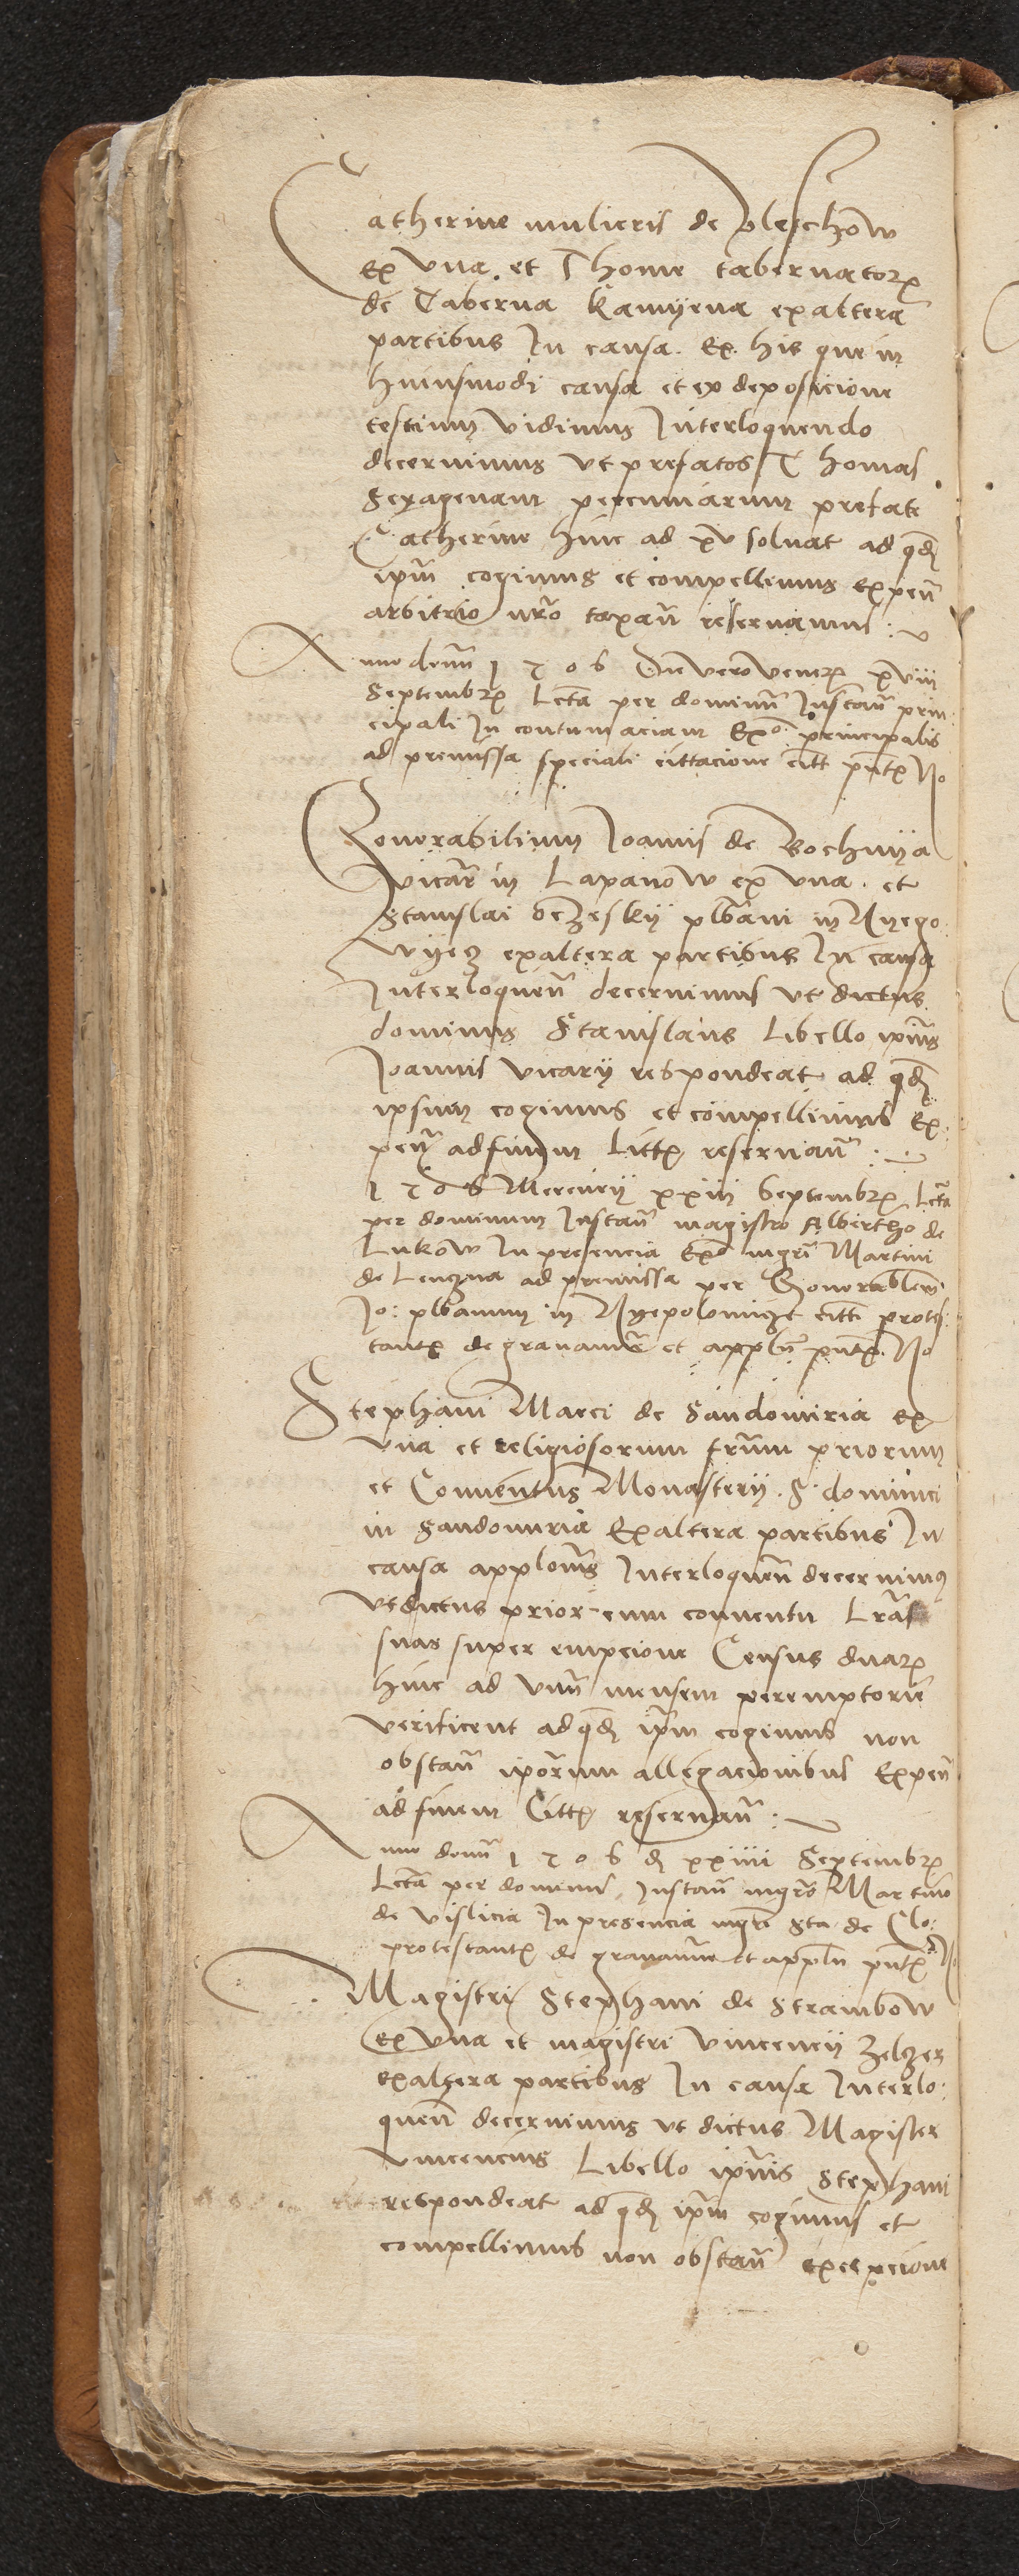 Catherine mulieris de Pleschow
Ex vna et Thome tabernatoris
de Taberna Kamyena exaltera
partibus In causa. Ex his que in
huiusmodi causa et ex deposicione
testium vidimus Interloquendo
decernimus vt prefatus Thomas
Sexagenam pecuniarum prefate
Catherine hinc ad xv soluat ad qđ
ipm̄ cogimus et compellimus Expen̄
arbitrio nr̄o taxan̄ reseruamus
Anno domī 1506 Die vero veneris xviii
Septembris Lcta per dominū Instan̄ prin
cipali In contumaciam Exo principalis
ad premissa speciali cittacione citt pn̄t No
Honorabilium Joannis de Bochnya
vicar̄ in Lapanow ex vna et
Stanislai pl̄bani in Nyego
wyecz exaltera partibus In causa
Interloquen̄ decernimus vt dictus
dominus Stanislaus Libello ipiūs
Joannis vicarij respondeat ad qđ
ipsum cogimus et compellimus Ex
pen̄ ad finem Littis reseruan̄
1506 Mercurij xxiii Septembris Lcta
per dominum Instan̄ magistro Albertho de
Lukow In presencia Exo mgr̄i Martini
de Lenczna ad premissa per Honorablem
Jo: pl̄banum in Nyepolomicze citt protes
tante de grauamīe et appl̄n pn̄t No
Stephani Marci de Sandomiria ex
vna et religiosorum frūm priorum
et Conuentus Monasterij S. dominici
in Sandomiria Exaltera partibus In
causa applonīs Interloquen̄ decernimus
vt dictus prior cum conuentu Lrās
suas super empcione Census duar
hinc ad vnū mensem peremptorie
verificent ad qđ ipm̄ cogimus non
obstan̄ ipōrum allegacionibus Expen̄
ad finem Littis reseruan̄
Anno domī 1506 d xxiiii Septembris
Lcta per dominū Instan̄ mgrō Martino
de vislicia In presencia mgrī Sta de Clo:
protestante de grauamīe et appln pn̄t No
Magistri Stephani de Strambow
ex vna et magistri vincencij Zelczer
exaltera partibus In causa Interlo
quen̄ decernimus vt dictus Magister
vincencius Libello ipiūs Stephani
respondeat ad qđ ipm̄ cogimus et
compellimus non obstan̄ excepcione